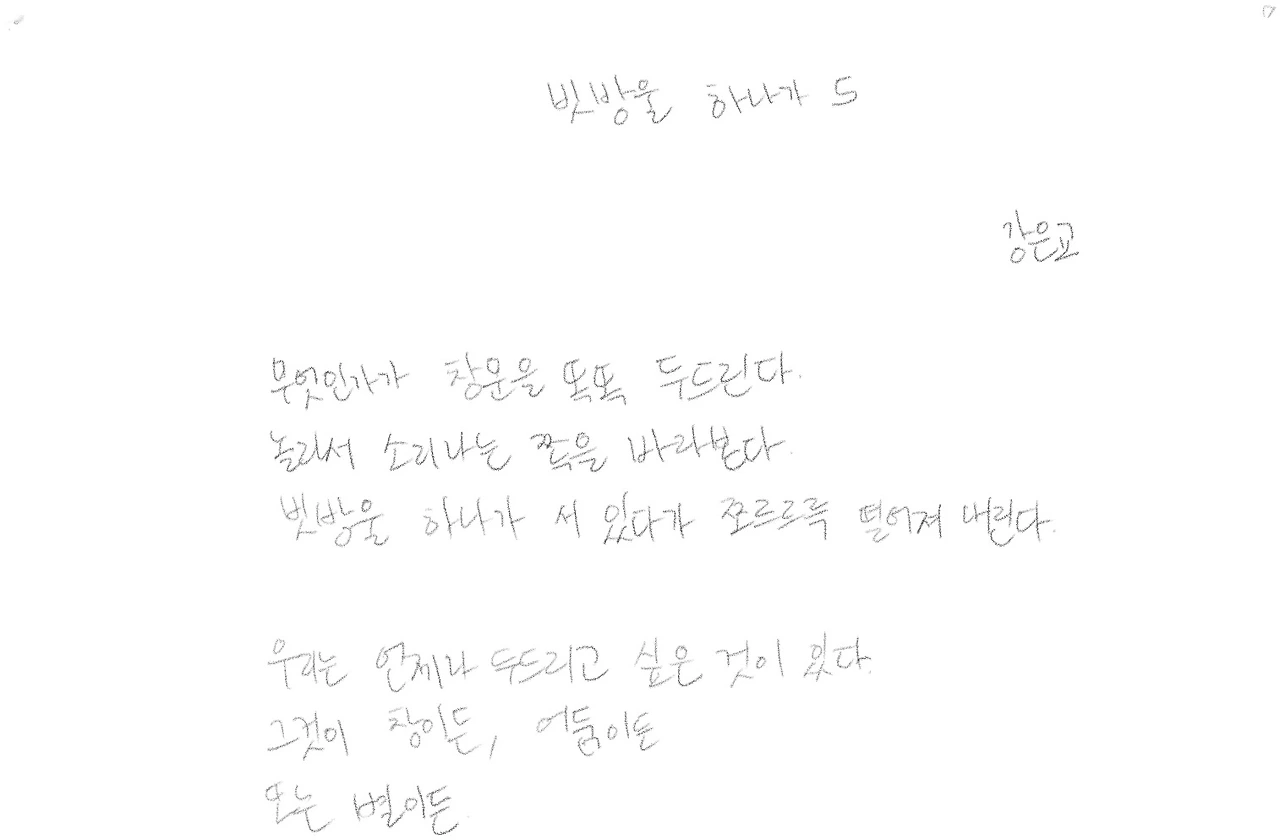 빗방울 하나가 5
강은교
무엇인가가 창문을 똑똑 두드린다.
놀라서 소리나는 쪽을 바라본다.
빗방울 하나가 서 있다가 쪼르르륵 떨어져 내린다.
우리는 언제나 두드리고 싶은 것이 있다.
그것이 창이든, 어둠이든
또는 별이든.